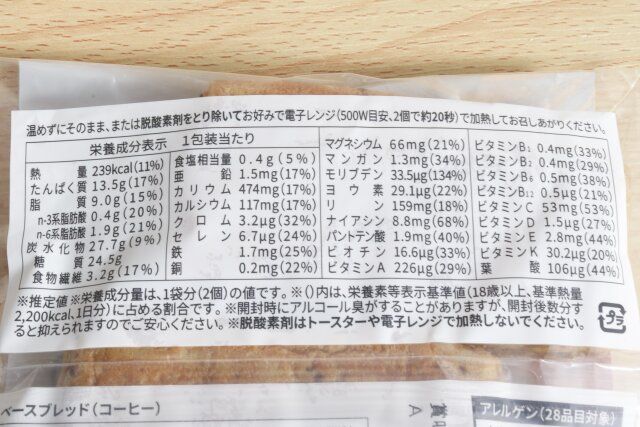 温めずにそのまま、または脱酸素剤をとり除いてお好みで電子レンジ(500W目安、2個で約20秒)で加熱してお召しあがりください。
栄養成分表示 1包装当たり
熱量 239kcal(11%)
たんぱく質 13.5g(17%)
脂質 9.0g(15%)
n-3系脂肪酸 0.4g(20%)
n-6系脂肪酸 1.9g(21%)
炭水化物 27.7g(9%)
糖質 24.5g
食物繊維 3.2g(17%)
食塩相当量 0.4g(5%)
亜鉛 1.5mg(17%)
カリウム 474mg(17%)
カルシウム 117mg(17%)
クロム 3.2μg(32%)
セレン 6.7μg(24%)
鉄 1.7mg(25%)
銅 0.2mg(22%)
マグネシウム 66mg(21%)
マンガン 1.3mg(34%)
モリブデン 33.5μg(134%)
ヨウ素 29.1μg(22%)
リン 159mg(18%)
ナイアシン 8.8mg(68%)
パントテン酸 1.9mg(40%)
ビオチン 16.6μg(33%)
ビタミンA 226μg(29%)
ビタミンB₁ 0.4mg(33%)
ビタミンB₂ 0.4mg(29%)
ビタミンB₆ 0.5mg(38%)
ビタミンB₁₂ 0.5μg(21%)
ビタミンC 53mg(53%)
ビタミンD 1.5μg(27%)
ビタミンE 2.8mg(44%)
ビタミンK 30.2μg(20%)
葉酸 106μg(44%)
※推定値 ※栄養成分量は、1袋分(2個)の値です。※()内は、栄養素等表示基準値(18歳以上、基準熱量
2,200kcal、1日分)に占める割合です。※開封時にアルコール臭がすることがありますが、開封後数分す
ると抑えられますのでご安心ください。※脱酸素剤はトースターや電子レンジで加熱しないでください。
プラ
ベースブレッド(コーヒー)
賞
A
アレルゲン(28品目対象)